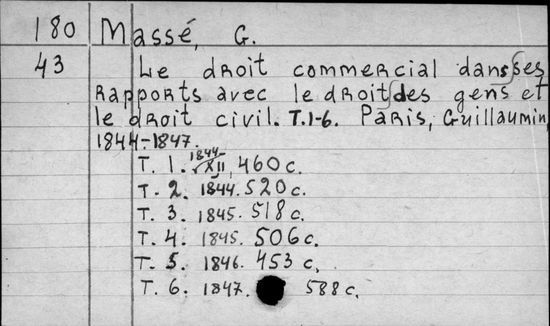 180 Massé, G.
43 Le droit commercial dans ses
rapports avec le droit des gens et
le droit civil. T.1-6. Paris, Guillaumin,
1844-1847.
T. 1. 1844. XII, 460 c.
T. 2. 1844. 520 c.
T. 3. 1845. 518 c.
T. 4. 1845. 506 c.
T. 5. 1846. 453 c.
T. 6. 1847. 588 c.